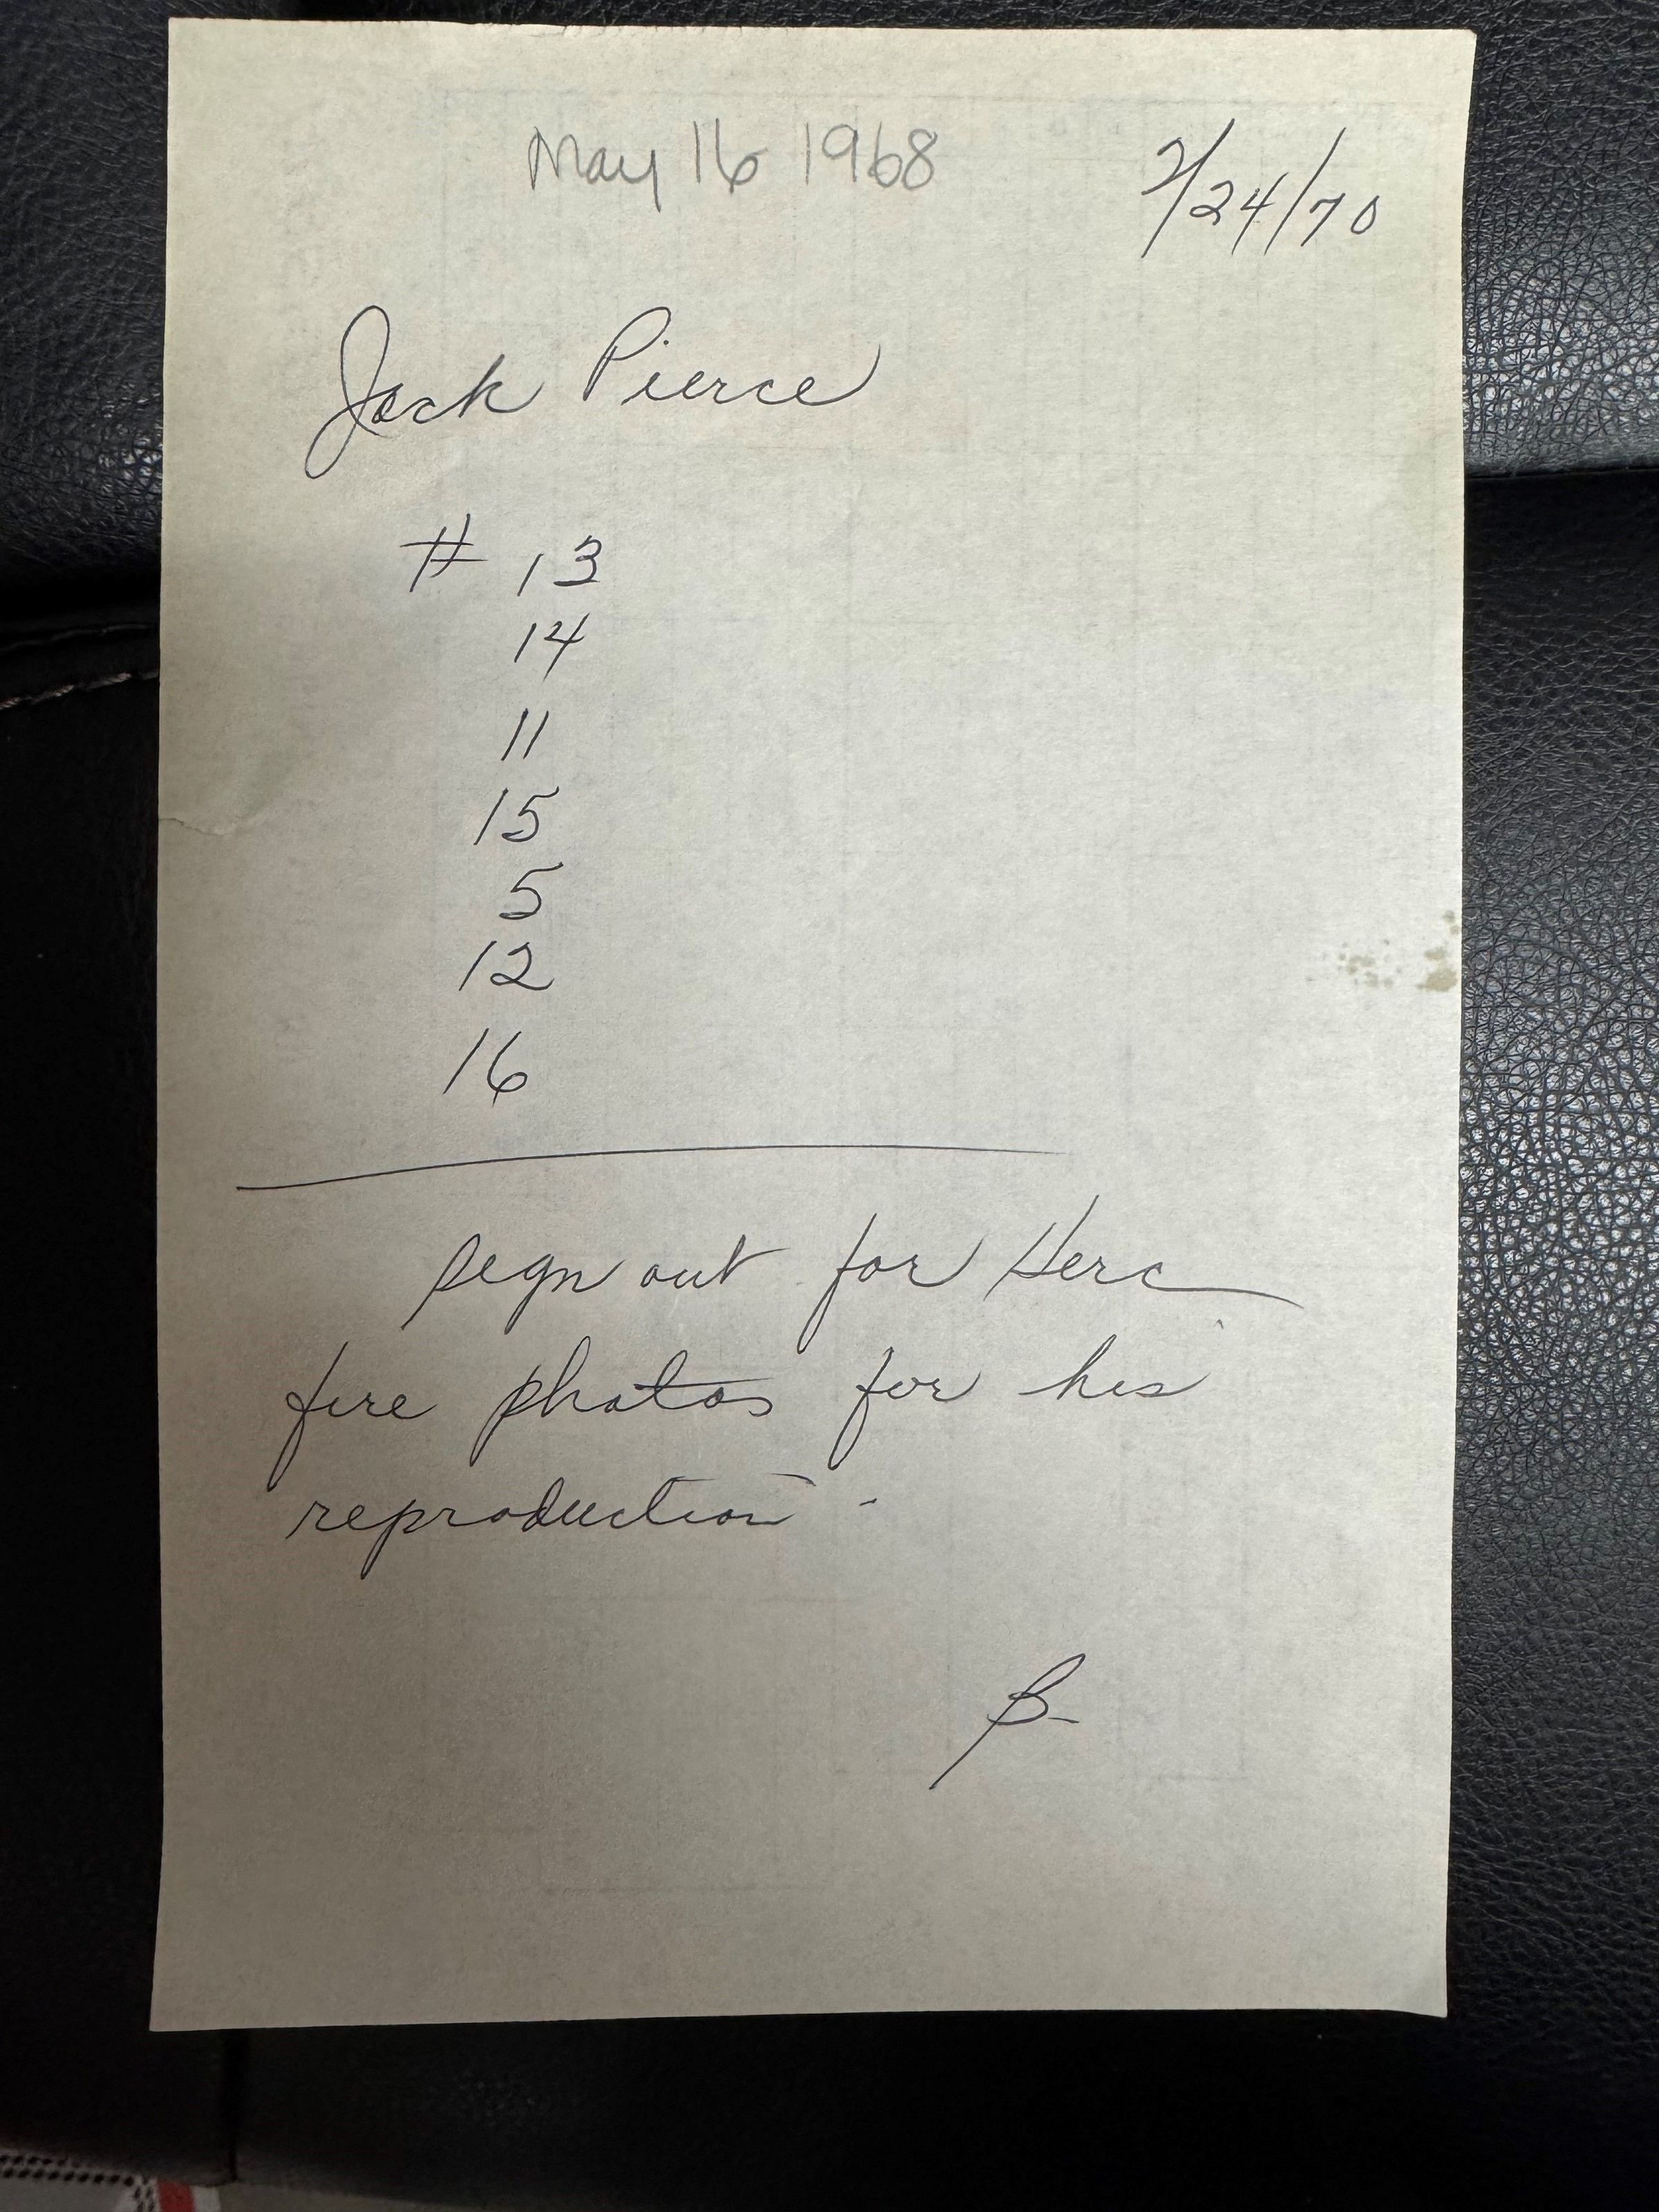 May 16 1968
2/24/70
Jack Pierce
# 13
14
11
15
5
12
16
sign out for Herc
fire photos for his
reproduction.
B